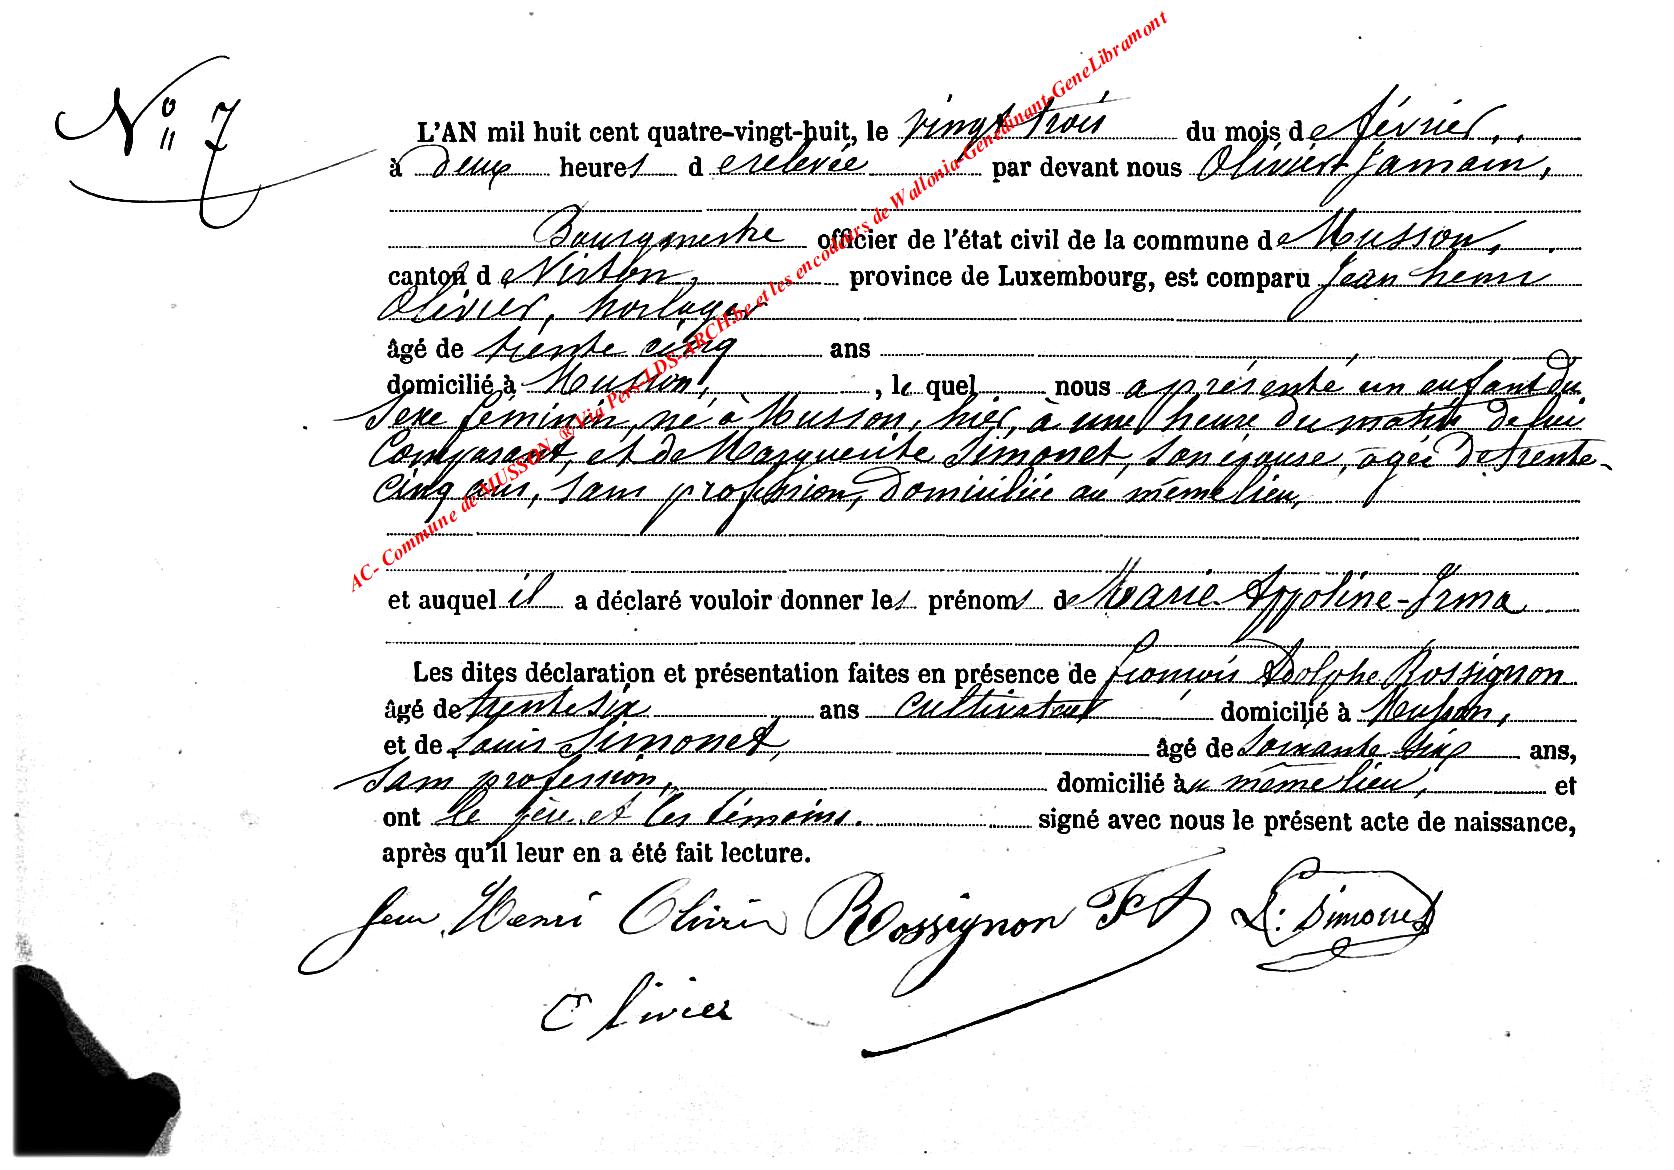 N° 7
L'AN mil huit cent quatre-vingt-huit, le vingt trois du mois de février,
à deux heures de relevée par devant nous Olivier Jamain,
Bourgmestre officier de l'état civil de la commune de Musson,
canton de Virton, province de Luxembourg, est comparu Jean henri
Olivier, horloger
âgé de trente cinq ans
domicilié à Musson, , lequel nous a présenté un enfant du
sexe féminin, né à Musson, hier, à une heure du matin de lui
Comparant, et de Marguerite Simonet, son épouse, agée de trente-
cinq ans, sans profession, domiciliée au même lieu,
et auquel il a déclaré vouloir donner les prénoms de Marie-Appoline-Irma
Les dites déclaration et présentation faites en présence de françois Adolphe Rossignon
âgé de trente six ans cultivateur domicilié à Musson,
et de Louis Simonet, âgé de soixante six ans,
sans profession, domicilié au même lieu, et
ont le père et les témoins. signé avec nous le présent acte de naissance,
après qu'il leur en a été fait lecture.
Jean Henri Olivier Rossignon F A L. Simonet
Olivier
AC- Commune de MUSSON ® Via Pers-LDS-ARCH.be et les encodeurs de Wallonia-Genedinant-GeneLibramont